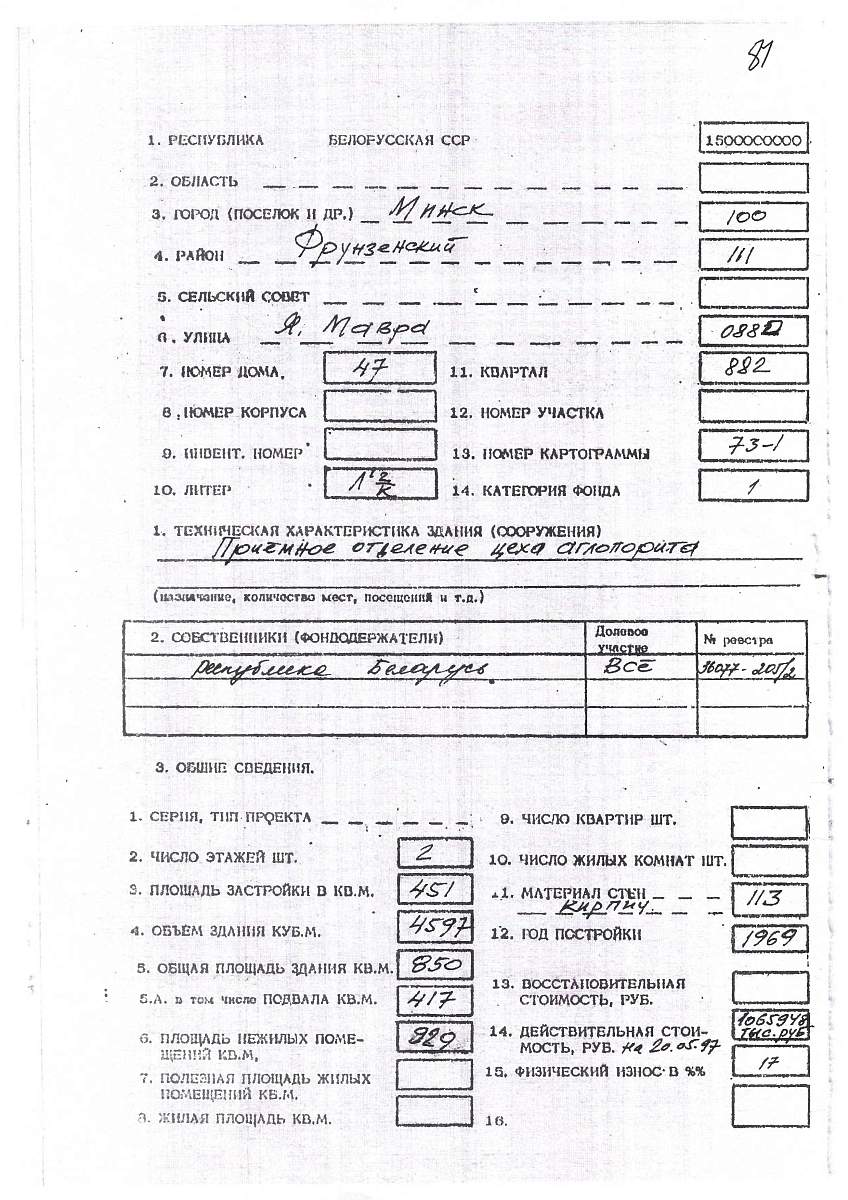 81
1. РЕСПУБЛИКА БЕЛОРУССКАЯ ССР 1500000000
2. ОБЛАСТЬ
3. ГОРОД (ПОСЕЛОК И ДР.) Минск 100
4. РАЙОН Фрунзенский 111
5. СЕЛЬСКИЙ СОВЕТ
6. УЛИЦА Я. Мавра 0882
7. НОМЕР ДОМА. 47 11. КВАРТАЛ 882
8. НОМЕР КОРПУСА 12. НОМЕР УЧАСТКА
9. ИНВЕНТ. НОМЕР 13. НОМЕР КАРТОГРАММЫ 73-1
10. ЛИТЕР 14. КАТЕГОРИЯ ФОНДА 1
1. ТЕХНИЧЕСКАЯ ХАРАКТЕРИСТИКА ЗДАНИЯ (СООРУЖЕНИЯ)
Приемное отделение цеха аглопорита
(назначение, количество мест, посещений и т.д.)
2. СОБСТВЕННИКИ (ФОНДОДЕРЖАТЕЛИ) Долевое участие № реестра
Республика Беларусь. ВСЁ 96077-205/2
3. ОБЩИЕ СВЕДЕНИЯ.
1. СЕРИЯ, ТИП ПРОЕКТА 9. ЧИСЛО КВАРТИР ШТ.
2. ЧИСЛО ЭТАЖЕЙ ШТ. 2 10. ЧИСЛО ЖИЛЫХ КОМНАТ ШТ.
3. ПЛОЩАДЬ ЗАСТРОЙКИ В КВ.М. 451 11. МАТЕРИАЛ СТЕН кирпич 113
4. ОБЪЁМ ЗДАНИЯ КУБ.М. 4597 12. ГОД ПОСТРОЙКИ 1969
5. ОБЩАЯ ПЛОЩАДЬ ЗДАНИЯ КВ.М. 850 13. ВОССТАНОВИТЕЛЬНАЯ СТОИМОСТЬ, РУБ.
5.А. в том число ПОДВАЛА КВ.М. 417
6. ПЛОЩАДЬ НЕЖИЛЫХ ПОМЕ- 829 14. ДЕЙСТВИТЕЛЬНАЯ СТОИ- 1065948
ЩЕНИЙ КВ.М, МОСТЬ, РУБ. на 20.05.97 тыс.руб
7. ПОЛЕЗНАЯ ПЛОЩАДЬ ЖИЛЫХ 15. ФИЗИЧЕСКИЙ ИЗНОС В %% 17
ПОМЕЩЕНИЙ КВ.М.
8. ЖИЛАЯ ПЛОЩАДЬ КВ.М. 16.